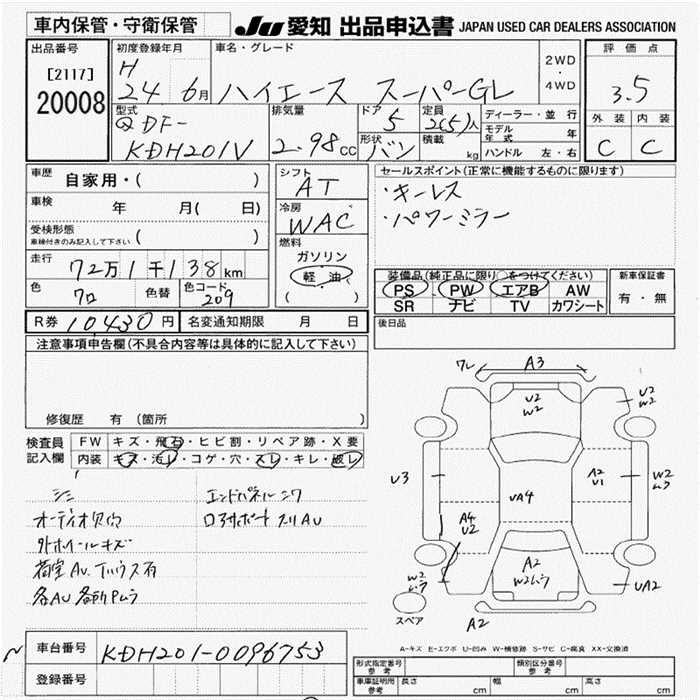 車内保管・守衛保管
JU 愛知 出品申込書 JAPAN USED CAR DEALERS ASSOCIATION
出品番号
[2117]
20008
初度登録年月
H
24 6月
車名・グレード
ハイエース スーパーGL
2WD
・
4WD
評価点
3.5
外装 内装
C C
型式
QDF-
KDH201V
排気量
2.98CC
ドア
5
形状
バン
定員
2(5)人
積載
kg
ディーラー・並行
モデル年式 年
ハンドル 左・右
車歴 自家用・( )
車検 年 月( 日)
受検形態
車検付きのみ記入して下さい ( )
走行 72万1千138km
色 クロ 色替 色コード 209
シフト
AT
冷房
WAC
燃料
ガソリン
軽・油
( )
セールスポイント(正常に機能するものに限ります)
・キーレス
・パワーミラー
装備品(純正品に限り○をつけてください)
PS PW エアB AW
SR ナビ TV カワシート
新車保証書
有・無
後日品
R券 10430円
名変通知期限 月 日
注意事項申告欄(不具合内容等は具体的に記入して下さい)
修復歴 有 (箇所 )
検査員記入欄
FW キズ・飛石・ヒビ割・リペア跡・X要
内装 キズ・汚レ・コゲ・穴・スレ・キレ・破レ
オーディオ欠品
外ホイールキズ
荷室AU、Tハウス有
各AU 各所Pムラ
ワレ A3
U2
W2
U2
W2
U3
UA4
A2
U1
W2
ムラ
A4
U2
A2
W2ムラ
W2
ムラ
UA2
A2
スペア
A-キズ E-エクボ U-凹み W-補修跡 S-サビ C-腐食 XX-交換済
車台番号 KDH201-0096753
登録番号
形式指定番号
参考
類別区分番号
参考
車庫証明用
参考
長さ cm 幅 cm 高さ cm